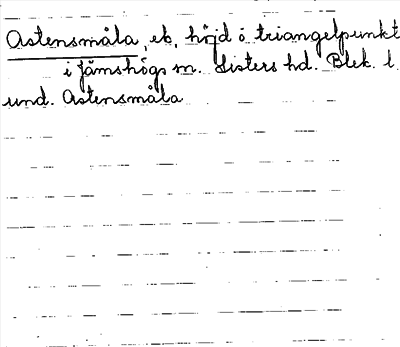 Astensmåla, eb, höjd o triangelpunkt
i Jämshögs sn. Listers hd. Blek. l
und. Astensmåla